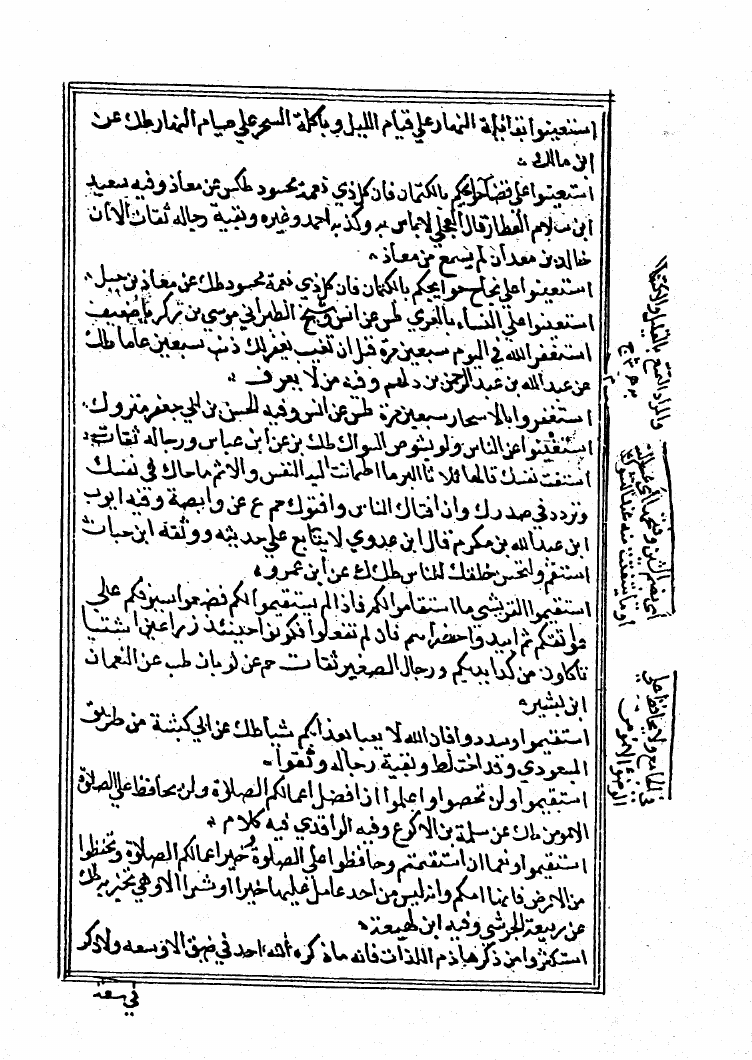 استعينوا بقائلة النهار على قيام الليل وباكلة السحر على صيام النهار طك عن
ابن مالك
استعينوا على قضآ حوايجكم بالكتمان فان كل ذي نعمة محسود طكس عن معاذ وفيه سعيد
ابن سلام العطار قال العجلي لا باس به وكذبه احمد وغيره وبقية رجاله ثقات الا ان
خالد بن معدان لم يسمع من معاذ
استعينوا على نجاح حوايجكم بالكتمان فان كل ذي نعمة محسود طك عن معاذ بن جبل
استعينوا على النساء بالعري طس عن انس وشيخ الطبراني موسى بن زكريا ضعيف
استغفر الله في اليوم سبعين مرة قبل ان تغيب يغفر لك ذنب سبعين عاما طك
عن عبد الله بن عبد الرحمن بن دلهم وفيه من لا يعرف
استغفروا بالاسحار سبعين مرة طس عن انس وفيه الحسن بن ابي جعفر متروك
استغنوا عن الناس ولو بشوص السواك طك بز عن ابن عباس ورجاله ثقات
استفت نفسك قالها ثلاثا البر ما اطمانت اليه النفس والاثم ما حاك في نفسك
وتردد في صدرك وان افتاك الناس وافتوك حم ع عن وابصة وفيه ايوب
ابن عبد الله بن مكرم قال ابن عدوي لا يتابع على حديثه ووثقه ابن حبان
استقم وليحسن خلقك للناس طك ك عن ابن عمرو
استقيموا لقريش ما استقاموا لكم فاذا لم يستقيموا لكم فضعوا سيوفكم على
عواتقكم ثم ابيدوا خضراهم فان لم تفعلوا فكونوا حينئذ زراعين اشقيا
تاكلون من كد ايديكم ورجال الصغير ثقات حم عن ثوبان طب عن النعمان
ابن بشير
استقيموا وسددوا فان الله لا يعبا بعذابكم شيا طك عن ابي كبشة من طريق
المسعودي وقد اختلط وبقية رجاله وثقوا
استقيموا ولن تحصوا واعلموا ان افضل اعمالكم الصلاة ولن يحافظ على الصلاة
الا مومن طك عن سلمة بن الاكوع وفيه الواقدي فيه كلام
استقيموا ونعما ان استقمتم وحافظوا على الصلوة خير اعمالكم الصلاة وتحفظوا
من الارض فانها امكم وانه ليس من احد عامل عليها خيرا او شرا الا وهي مخبر به طك
عن ربيعة الجرشي وفيه ابن لهيعة
استكثروا من ذكر هاذم اللذات فانه ما ذكره احد في ضيق الا وسعه ولا ذكر
في سعة